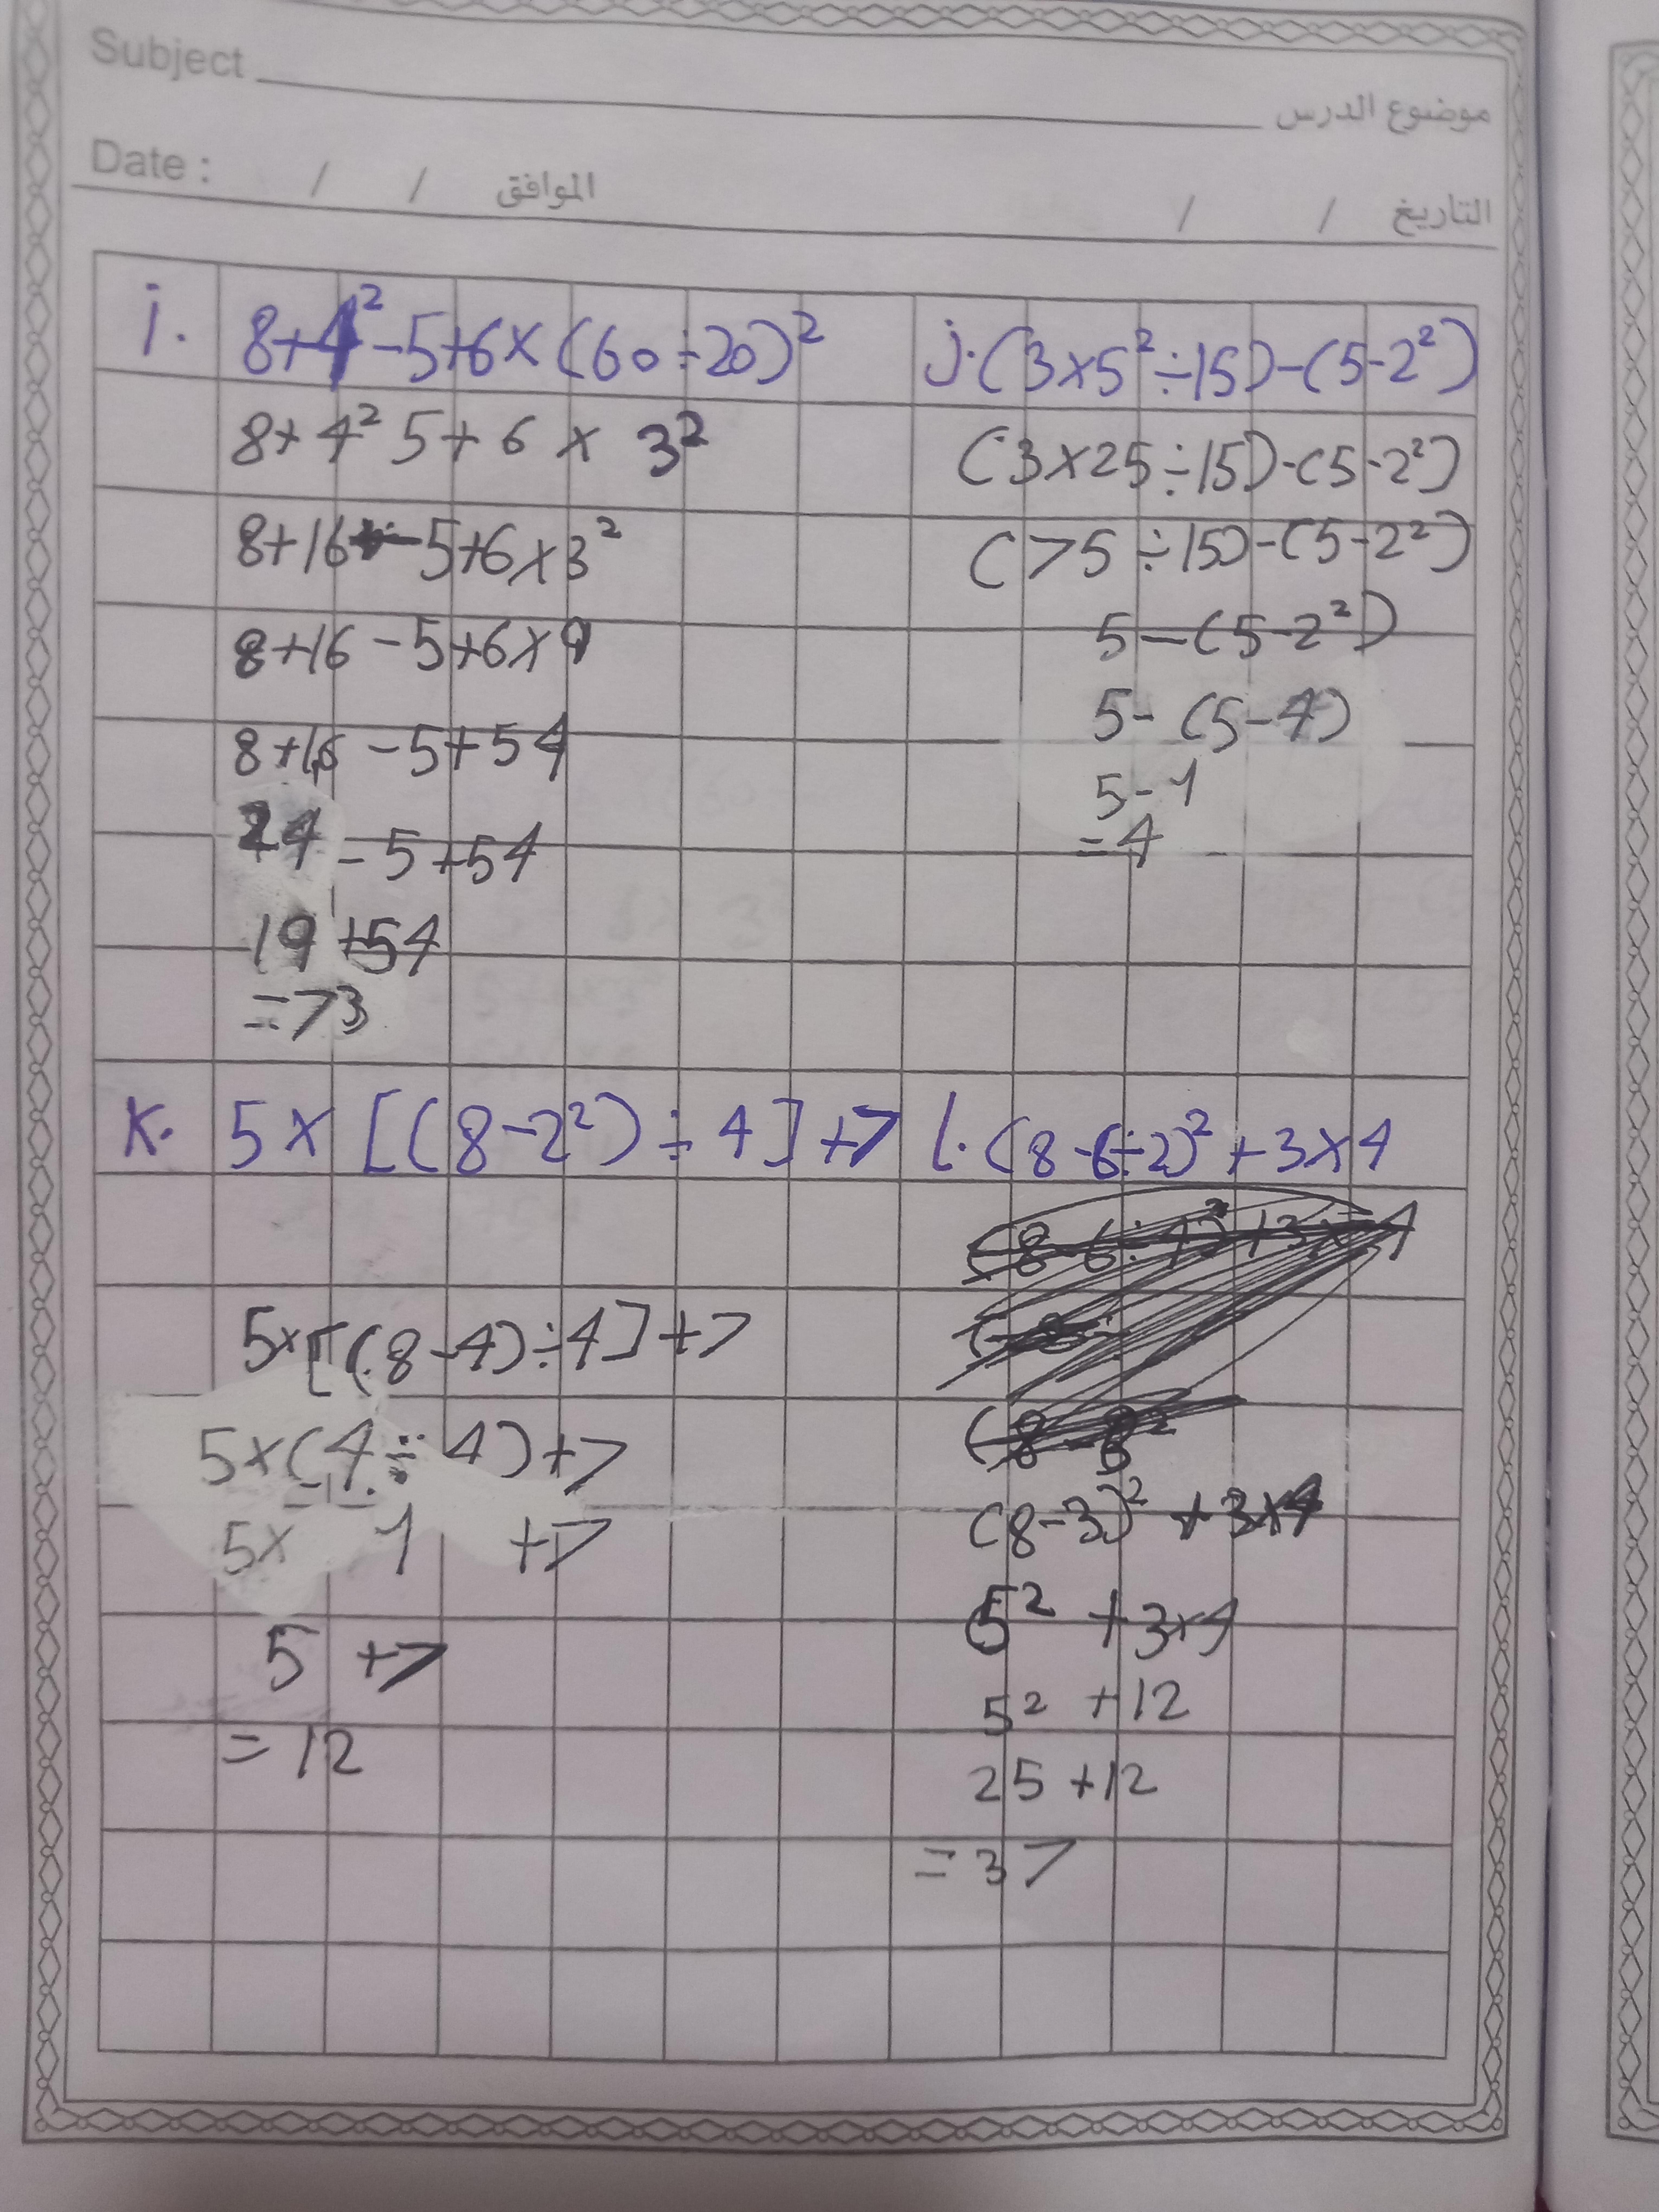 Subject موضوع الدرس
Date : / / الموافق / / التاريخ
i. 8+4²-5+6×(60÷20)²
8+4² 5+6 × 3²
8+16-5+6×3²
8+16-5+6×9
8+16-5+54
24-5+54
19+54
=73
j.(3×5²÷15)-(5-2²)
(3×25÷15)-(5-2²)
(75÷15)-(5-2²)
5-(5-2²)
5-(5-4)
5-1
=4
K. 5×[(8-2²)÷4]+7
5×[(8-4)÷4]+7
5×(4÷4)+7
5× 1 +7
5 +7
=12
l.(8-6÷2)²+3×4
(8-3)²+3×4
5² +3×4
5² +12
25+12
=37